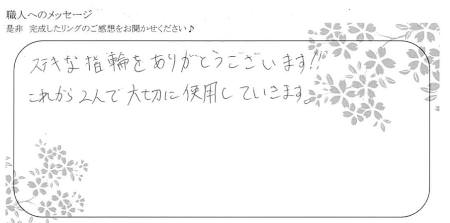 職人へのメッセージ
是非 完成したリングのご感想をお聞かせください♪
ステキな指輪をありがとうございます!!
これから2人で大切に使用していきます。